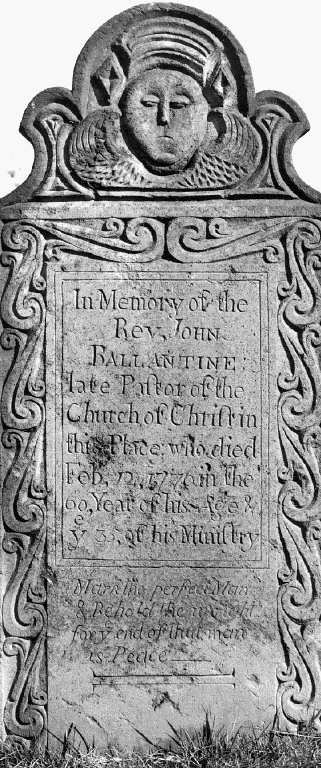 In Memory of the
Rev. JOHN
BALLANTINE:
late Pastor of the
Church of Christ in
this Place; who died
Feb. 12, 1776 in the
60, Year of his Age &
yͤ 35, of his Ministry
Mark the perfect Man
& Behold the upright
for yͤ end of that man
is Peace